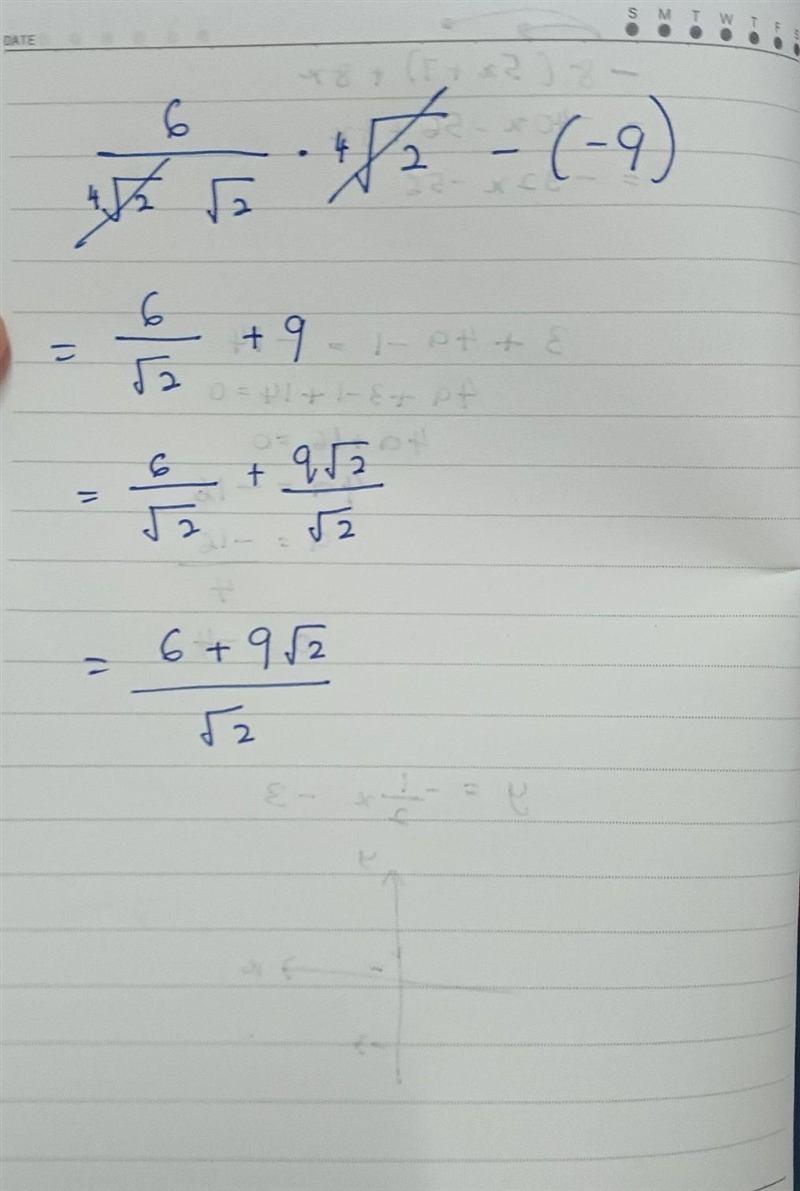 DATE S M T W T F S
6/(⁴√2 √2) · ⁴√2 - (-9)
= 6/√2 + 9
= 6/√2 + 9√2/√2
= (6 + 9√2)/√2